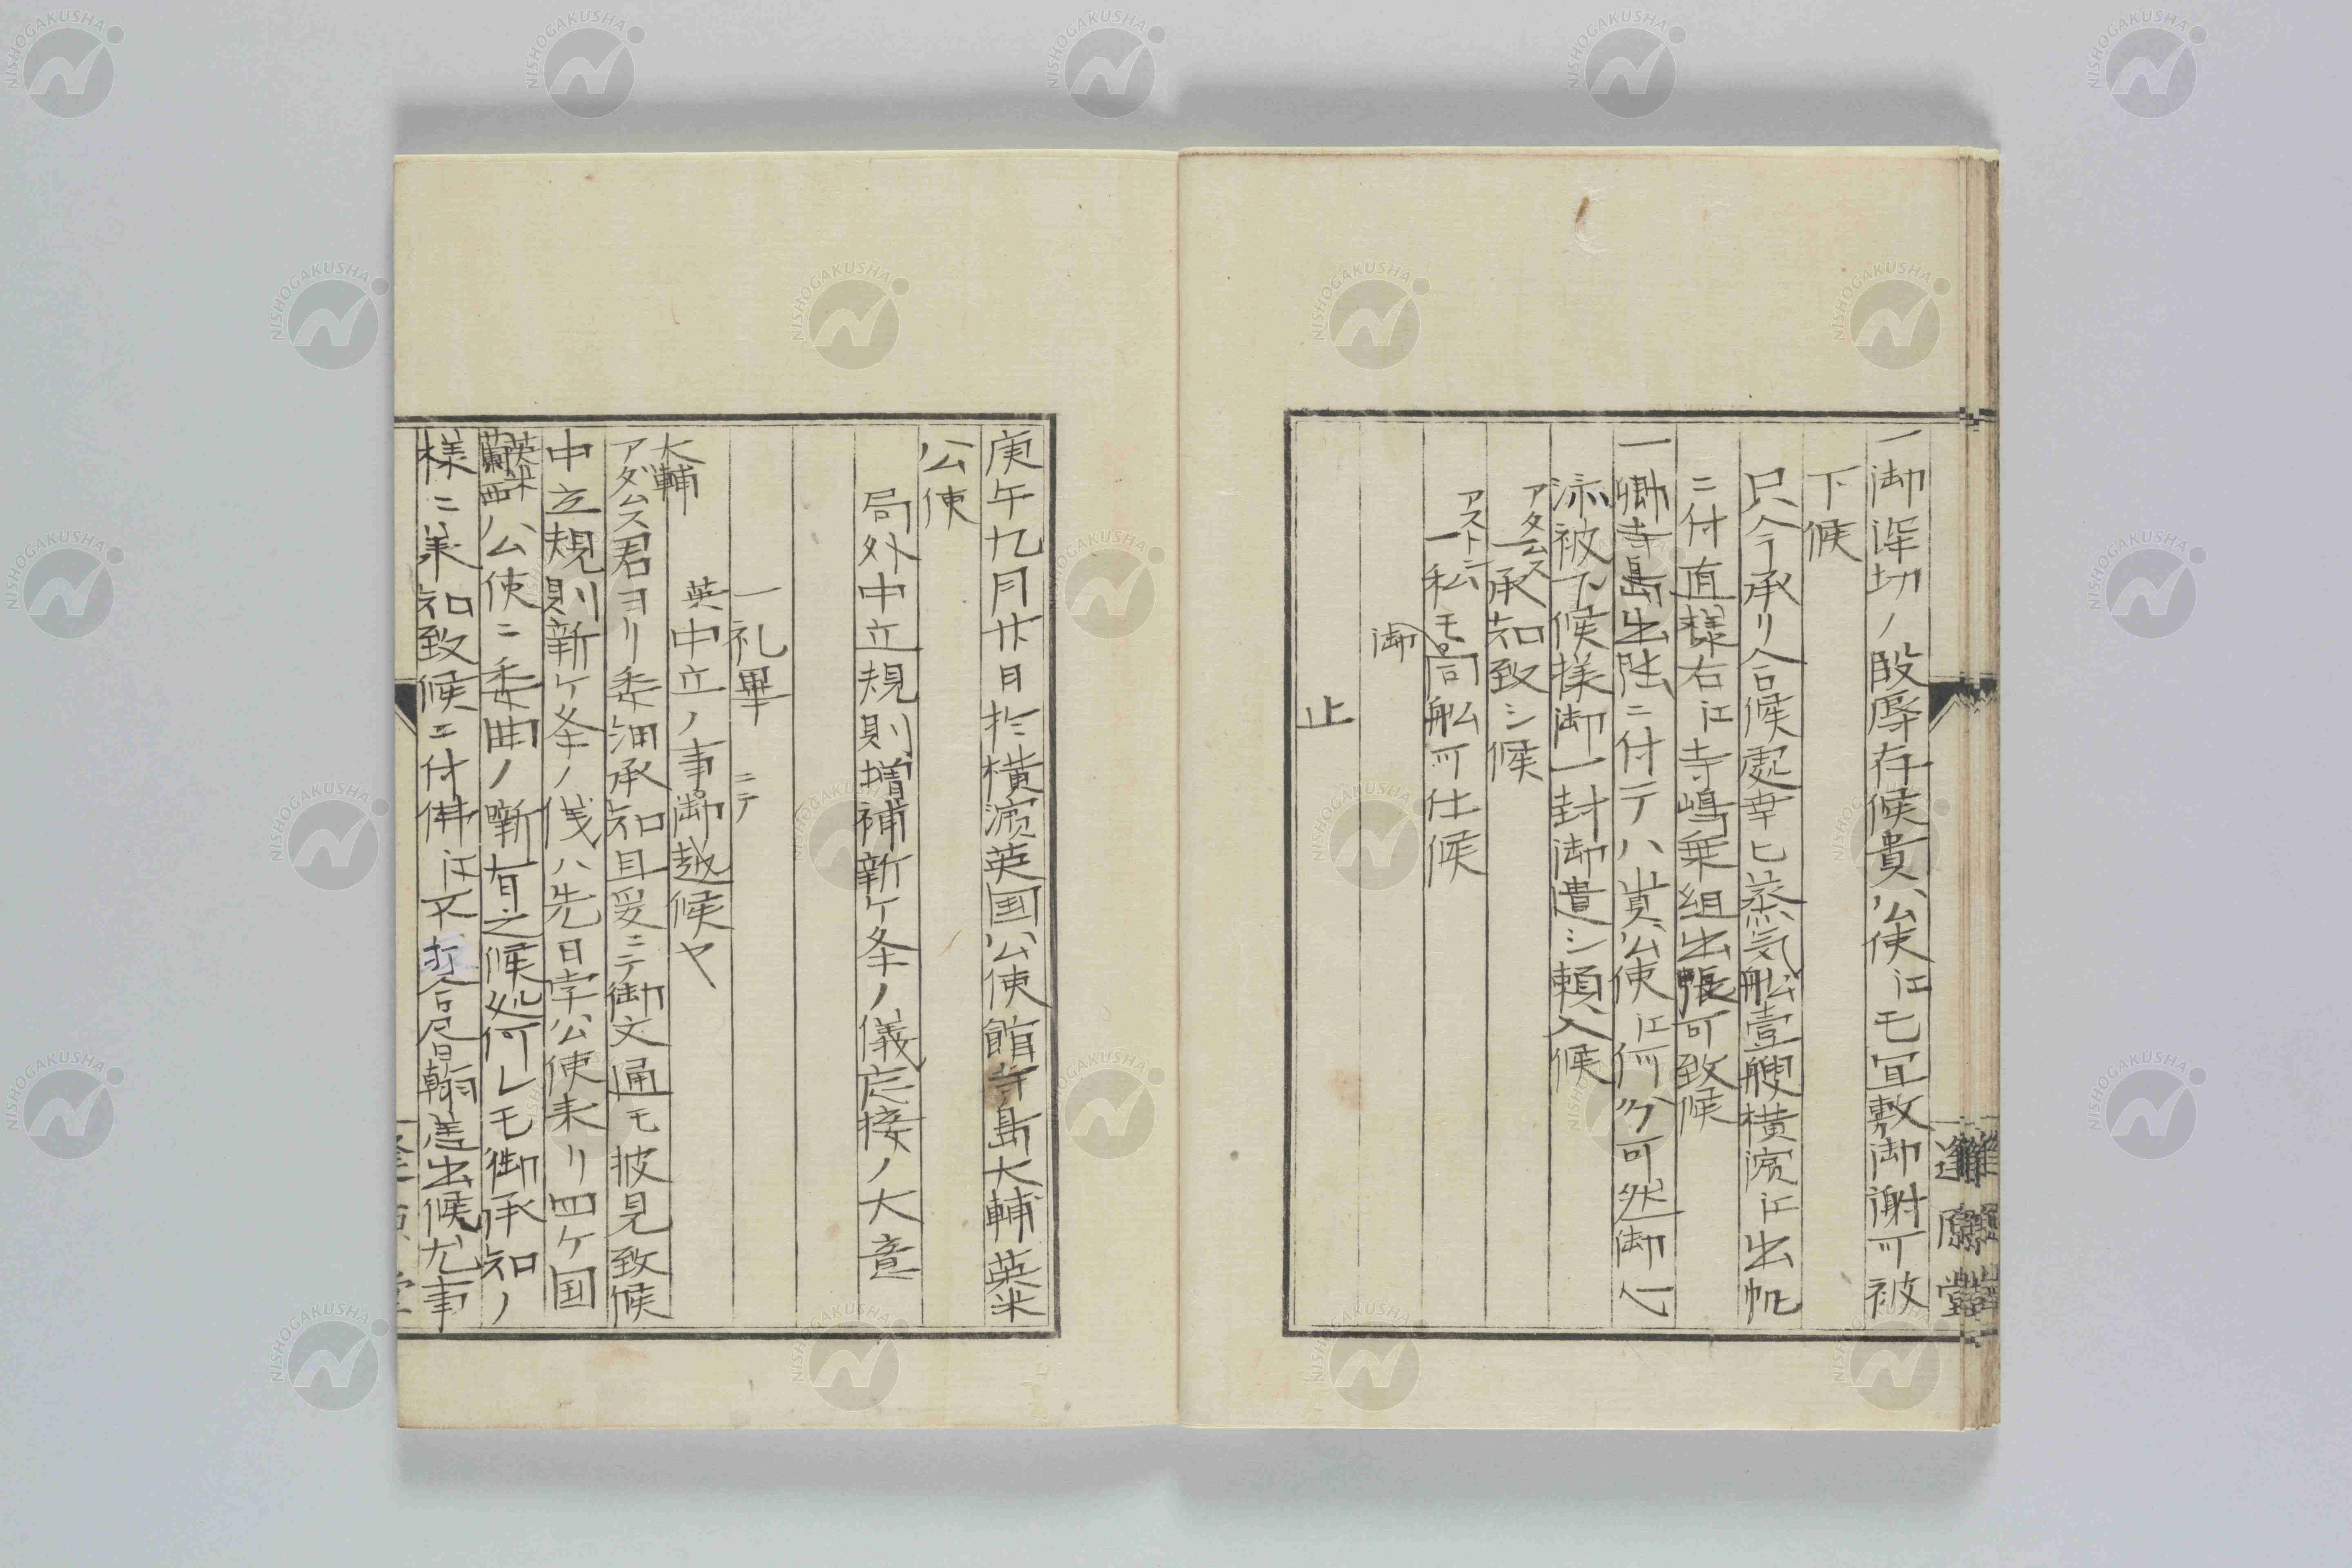 一御深切ノ段辱存候貴公使江モ宜敷御謝可被
下候
只今承リ合候處幸ヒ蒸気舩壹艘横濱江出帆
ニ付直様右江寺嶋乗組出帳可致候
一卿寺島出張ニ付テハ貴公使江何分可然御心
添被下候様御一封御遣シ頼入候
アダムス
一承知致シ候
アストン
一私モ同舩可仕候
御
止
逢原堂
庚午九月廿日於横濱英国公使館寺島大輔英米
公使
局外中立規則増補新ケ条ノ儀応接ノ大意
一礼畢
ニテ
英中立ノ事御越候ヤ
大輔
アダムス君ヨリ委細承知且爰ニテ御文通モ披見致候
中立規則新ケ条ノ儀ハ先日孛公使来リ四ケ国
英米
蘭西公使ニ委曲ノ噺有之候処何レモ御承知ノ
様ニ承知致候ニ付佛江不掛合尽書翰差出候尤事